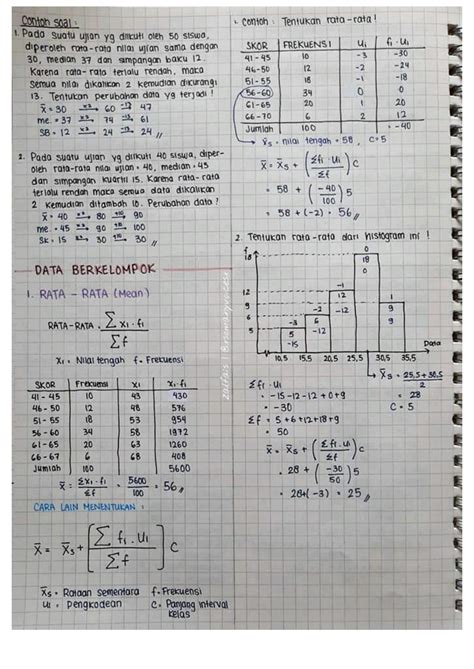 Contoh soal :
1. Pada suatu ujian yg diikuti oleh 50 siswa,
diperoleh rata-rata nilai ujian sama dengan
30, median 37 dan simpangan baku 12.
Karena rata-rata terlalu rendah, maka
semua nilai dikalikan 2 kemudian dikurangi
13. Tentukan perubahan data yg terjadi !
x̄ = 30 →x2 60 →-13 47
me. = 37 →x2 74 →-13 61
SB = 12 →x2 24 → 24 //
2. Pada suatu ujian yg diikuti 40 siswa, diper-
oleh rata-rata nilai ujian = 40, median = 45
dan simpangan kuartil 15. Karena rata-rata
terlalu rendah maka semua data dikalikan
2 kemudian ditambah 10. Perubahan data ?
x̄ = 40 →x2 80 →+10 90
me. = 45 →x2 90 →+10 100
Sk = 15 →x2 30 →+10 30 //
DATA BERKELOMPOK
1. RATA - RATA (Mean)
RATA-RATA = ∑ xi . fi / ∑f
xi = Nilai tengah f = Frekuensi
SKOR Frekuensi xi xi.fi
41 - 45 10 43 430
46 - 50 12 48 576
51 - 55 18 53 954
56 - 60 34 58 1972
61 - 65 20 63 1260
66 - 67 6 68 408
Jumlah 100 5600
x̄ = ∑xi . fi / ∑f = 5600 / 100 = 56 //
CARA LAIN MENENTUKAN :
x̄ = x̄s + [∑ fi . ui / ∑f] C
x̄s = Rataan sementara f = Frekuensi
ui = Pengkodean C = Panjang interval
kelas
1. Contoh : Tentukan rata-rata !
SKOR FREKUENSI Ui fi . Ui
41 - 45 10 -3 -30
46 - 50 12 -2 -24
51 - 55 18 -1 -18
56 - 60 34 0 0
61 - 65 20 1 20
66 - 70 6 2 12
Jumlah 100 = -40
x̄s = nilai tengah = 58, C = 5
x̄ = x̄s + (∑fi . Ui / ∑f) C
= 58 + (-40 / 100) 5
= 58 + (-2) = 56 //
2. Tentukan rata-rata dari histogram ini !
f
18
12
9
6
5
-3
5
-15
-2
6
-12
-1
12
-12
0
18
0
1
9
9
Data
10,5 15,5 20,5 25,5 30,5 35,5
x̄s = 25,5 + 30,5 / 2
= 28
C = 5
∑fi . Ui
= -15 -12 -12 + 0 + 9
= -30
∑f = 5 + 6 + 12 + 18 + 9
= 50
x̄ = x̄s + (∑fi . Ui / ∑f) C
= 28 + (-30 / 50) 5
= 28 + (-3) = 25 //